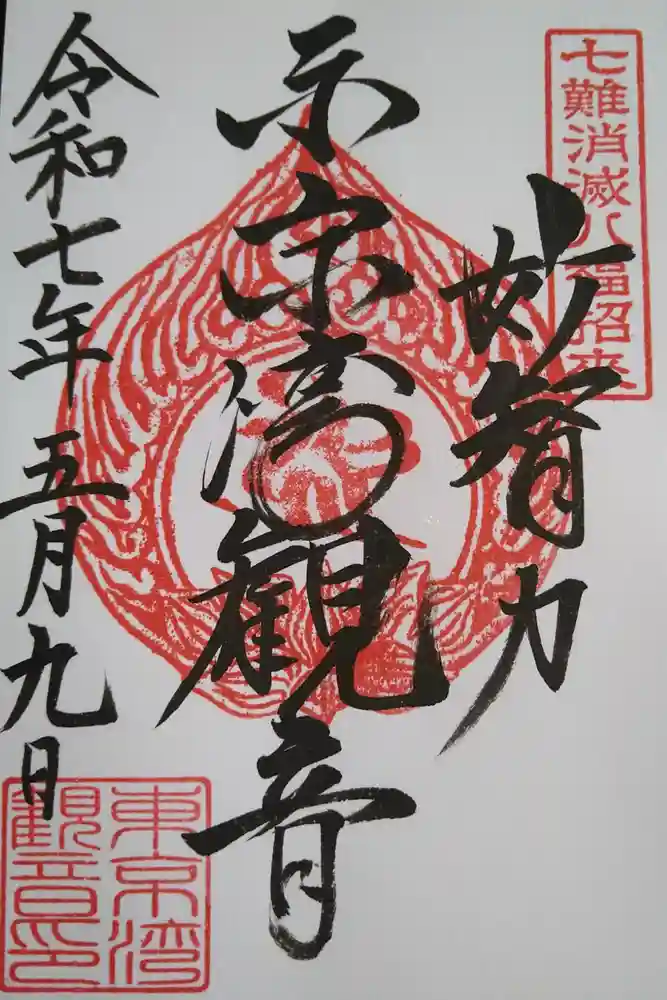 七難消滅八福招来
妙智力
東京湾観音
令和七年 五月九日
東京湾
観音印